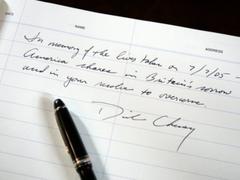 NAME
ADDRESS
In memory of the lives taken on 7/7/05 -
America shares in Britain's sorrow
and in your resolve to overcome
Dick Cheney